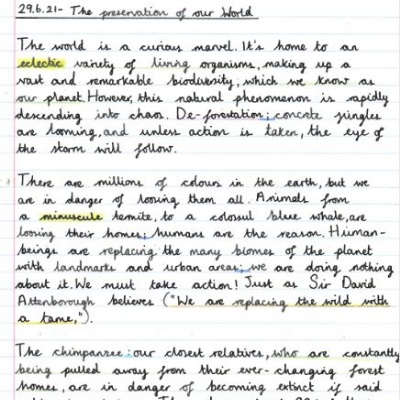 29.6.21- The preservation of our World
The world is a curious marvel. It's home to an
eclectic variety of living organisms, making up a
vast and remarkable biodiversity; which we know as
our planet. However, this natural phenomenon is rapidly
descending into chaos. De-forestation; concrete jungles
are looming, and unless action is taken, the eye of
the storm will follow.
There are millions of colours in the earth, but we
are in danger of loosing them all. Animals from
a minuscule termite, to a colossul blue whale, are
loosing their homes; humans are the reason. Human-
beings are replacing the many biomes of the planet
with landmarks and urban areas; we are doing nothing
about it. We must take action! Just as Sir David
Attenborough believes ("We are replacing the wild with
a tame,").
The chimpanzee: our closest relatives, who are constantly
being pulled away from their ever-changing forest
homes, are in danger of becoming extinct if said